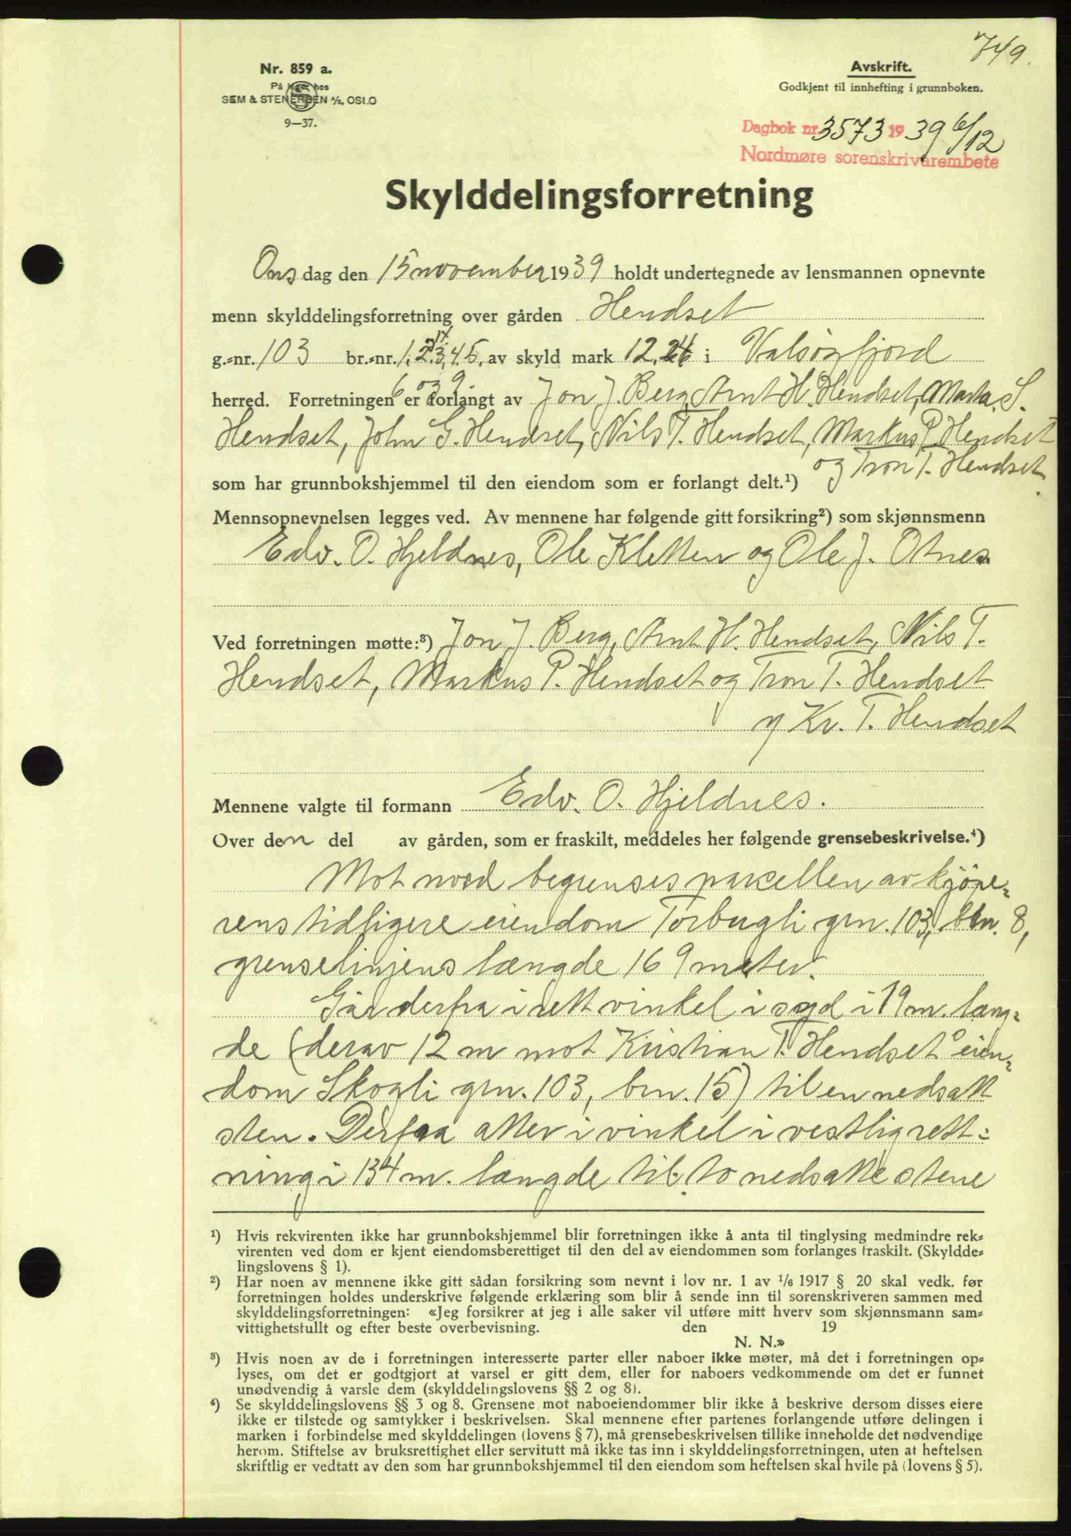 749.
Nr. 859 a.
På lager hos
SEM & STENERSEN A/S, OSLO
9—37.
Avskrift.
Godkjent til innhefting i grunnboken.
Dagbok nr. 3573 1939 6/12
Nordmøre sorenskriverembete
Skylddelingsforretning
Onsdag den 15 november 1939 holdt undertegnede av lensmannen opnevnte
menn skylddelingsforretning over gården Hendset
g.=nr. 103 br.=nr. 1, 2, 3, 4, 5, av skyld mark 12.26 i Valsøyfjord
6 og 9
herred. Forretningen er forlangt av Jon J. Berg, Arnt H. Hendset, Marta S.
Hendset, John G. Hendset, Nils T. Hendset, Markus P. Hendset
og Tron T. Hendset
som har grunnbokshjemmel til den eiendom som er forlangt delt.¹)
Mennsopnevnelsen legges ved. Av mennene har følgende gitt forsikring²) som skjønnsmenn
Edv. O. Hjeldnes, Ole Kletten og Ole J. Otnes.
Ved forretningen møtte:³) Jon J. Berg, Arnt H. Hendset, Nils T.
Hendset, Markus P. Hendset og Tron T. Hendset
og Kr. T. Hendset
Mennene valgte til formann Edv. O. Hjeldnes.
Over den del av gården, som er fraskilt, meddeles her følgende grensebeskrivelse.⁴)
Mot nord begrenses parcellen av kjøpe=
rens tidligere eiendom Torbugli grn. 103, brn. 8,
grenselinjens længde 169 meter.
Går derfra i rett vinkel i syd i 19 m. læng=
de (derav 12 m mot Kristian T. Hendset's eien=
dom Skogli grn. 103, brn. 15) til en nedsatt
sten. Derfra atter i vinkel i vestlig rett=
ning i 134 m. længde til to nedsatte stene
¹) Hvis rekvirenten ikke har grunnbokshjemmel blir forretningen ikke å anta til tinglysing medmindre rek=
virenten ved dom er kjent eiendomsberettiget til den del av eiendommen som forlanges fraskilt. (Skyldde=
lingslovens § 1).
²) Har noen av mennene ikke gitt sådan forsikring som nevnt i lov nr. 1 av 1/6 1917 § 20 skal vedk. før
forretningen holdes underskrive følgende erklæring som blir å sende inn til sorenskriveren sammen med
skylddelingsforretningen: «Jeg forsikrer at jeg i alle saker vil utføre mitt hverv som skjønnsmann sam=
vittighetsfullt og efter beste overbevisning. den 19
N. N.»
³) Hvis noen av de i forretningen interesserte parter eller naboer ikke møter, må det i forretningen op=
lyses, om det er godtgjort at varsel er gitt dem, eller for naboers vedkommende om det er funnet
unødvendig å varsle dem (skylddelingslovens §§ 2 og 8).
⁴) Se skylddelingslovens §§ 3 og 8. Grensene mot naboeiendommer blir ikke å beskrive dersom disses eiere
ikke er tilstede og samtykker i beskrivelsen. Skal mennene efter partenes forlangende utføre delingen i
marken i forbindelse med skylddelingen (lovens § 7), må grensebeskrivelsen tillike inneholde det nødvendige
herom. Stiftelse av bruksrettighet eller servitutt må ikke tas inn i skylddelingsforretningen, uten at heftelsen
skriftlig er vedtatt av den som har grunnbokshjemmel til den eiendom som heftelsen skal hvile på (lovens § 5).